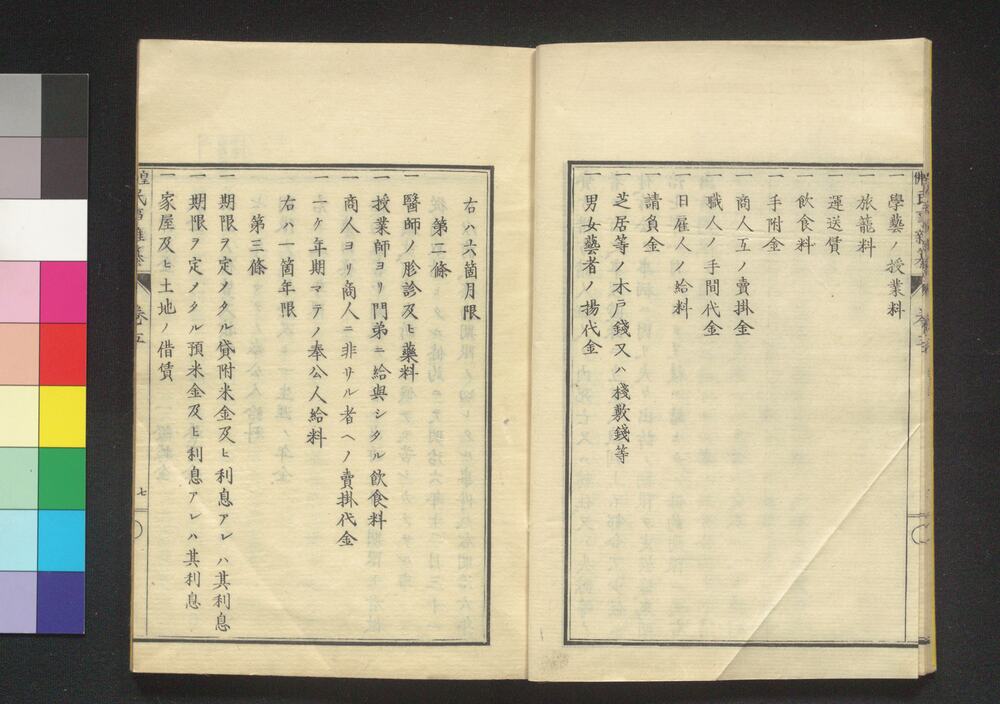 一 學藝ノ授業料
一 旅籠料
一 運送賃
一 飲食料
一 手附金
一 商人互ノ賣掛金
一 職人ノ手間代金
一 日雇人ノ給料
一 請負金
一 芝居等ノ木戸錢又ハ棧敷錢等
一 男女藝者ノ揚代金
右ハ六箇月限
第二條
一 醫師ノ胗診及ヒ藥料
一 授業師ヨリ門弟ニ給與シタル飲食料
一 商人ヨリ商人ニ非サル者ヘノ賣掛代金
一 一ケ年期マテノ奉公人給料
右ハ一箇年限
第三條
一 期限ヲ定メタル貸附米金及ヒ利息アレハ其利息
一 期限ヲ定メタル預米金及ヒ利息アレハ其利息
一 家屋及ヒ土地ノ借賃
卷五
七